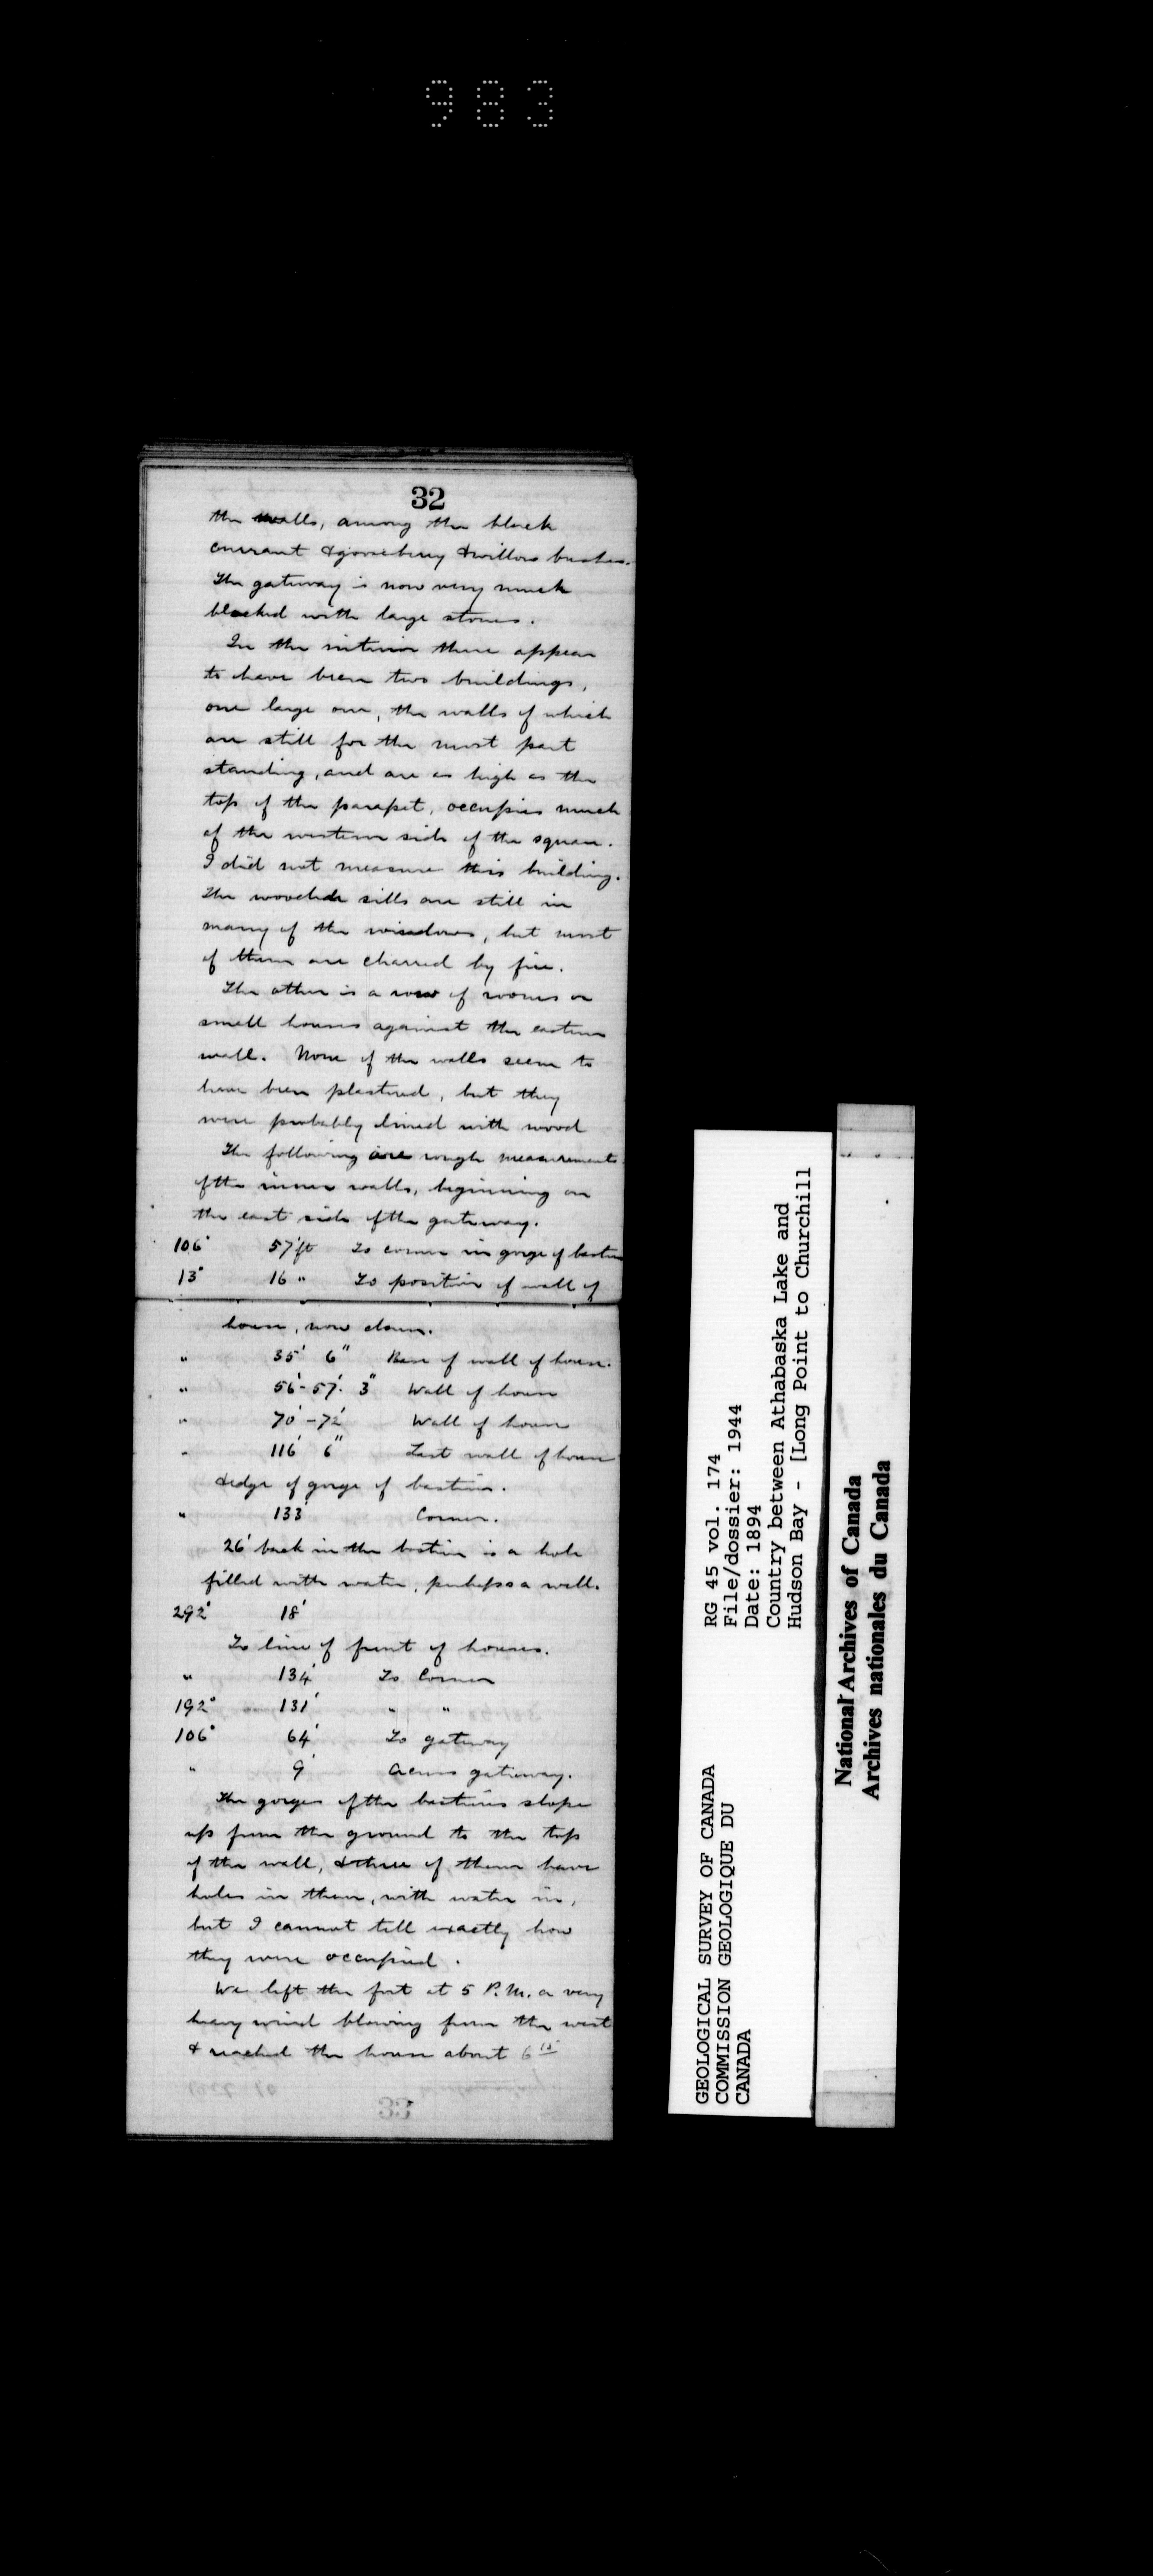 983
32
the walls, among the black
currant & gooseberry & willow bushes.
The gateway is now very much
blocked with large stones.
In the interior there appear
to have been two buildings,
one large one, the walls of which
are still for the most part
standing, and are as high as the
top of the parapet, occupies much
of the western side of the square.
I did not measure this building.
The wooden sills are still in
many of the windows, but most
of them are charred by fire.
The other is a row of rooms or
small houses against the eastern
wall. None of the walls seem to
have been plastered, but they
were probably lined with wood
The following are rough measurements
of the inner walls, beginning on
the east side of the gateway.
106° 57 ft To corner in gorge of bastion
13° 16 " To position of wall of
house, now down.
" 35' 6" Base of wall of house.
" 56'-57' 3" Wall of house
" 70'-72' Wall of house
" 116' 6" Last wall of house
& edge of gorge of bastion.
" 133' Corner.
26' back in the bastion is a hole
filled with water, perhaps a well.
292° 18'
To line of front of houses.
" 134' To Corner
192° 131' " "
106° 64' To gateway
" 9' Across gateway.
The gorges of the bastions slope
up from the ground to the top
of the wall, & three of them have
holes in them, with water in,
but I cannot tell exactly how
they were occupied.
We left the fort at 5 P.M. a very
heavy wind blowing from the west
& reached the house about 6 15
33
GEOLOGICAL SURVEY OF CANADA
COMMISSION GEOLOGIQUE DU
CANADA
RG 45 vol. 174
File/dossier: 1944
Date: 1894
Country between Athabaska Lake and
Hudson Bay - [Long Point to Churchill
National Archives of Canada
Archives nationales du Canada